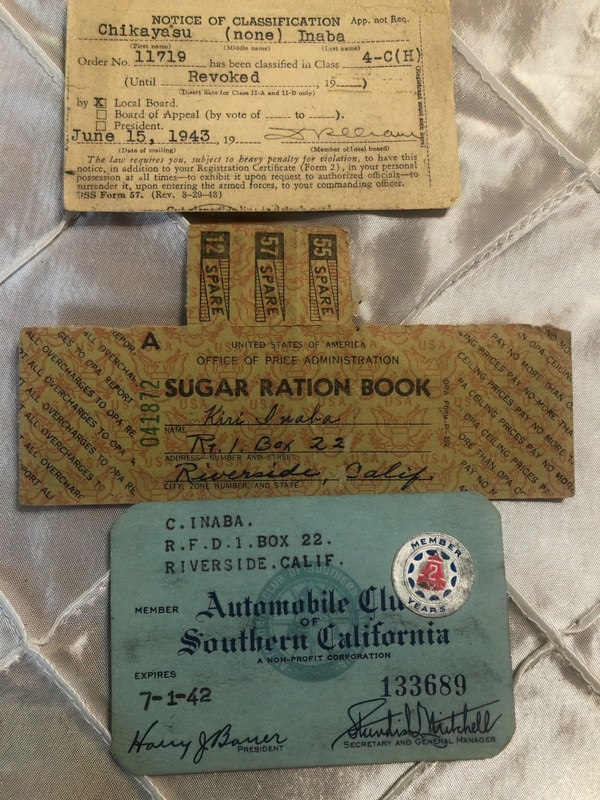 NOTICE OF CLASSIFICATION App. not Req.
Chikayasu (none) Inaba
(First name) (Middle name) (Last name)
Order No. 11719 has been classified in Class 4-C(H)
(Until Revoked , 19 )
(Insert date for Class II-A and II-B only)
by X Local Board.
Board of Appeal (by vote of to ).
President.
June 15, 1943 , 19
(Date of mailing) (Member of local board)
The law requires you, subject to heavy penalty for violation, to have this
notice, in addition to your Registration Certificate (Form 2), in your personal
possession at all times—to exhibit it upon request to authorized officials—to
surrender it, upon entering the armed forces, to your commanding officer.
DSS Form 57. (Rev. 3-29-43)
12 SPARE
57 SPARE
55 SPARE
A
UNITED STATES OF AMERICA
OFFICE OF PRICE ADMINISTRATION
041872
SUGAR RATION BOOK
NAME Kiri Inaba
Rt. 1. Box 22
ADDRESS—NUMBER AND STREET
Riverside, Calif.
CITY, ZONE NUMBER, AND STATE
ALL OVERCHARGES TO OPA REPORT
CEILING PRICES PAY NO MORE THAN OPA
C.INABA.
R.F.D.1.BOX 22.
RIVERSIDE.CALIF.
MEMBER
2
YEARS
MEMBER Automobile Clu
OF
Southern California
A NON-PROFIT CORPORATION
EXPIRES
7-1-42
133689
Harry J Bauer
PRESIDENT
Standish L Mitchell
SECRETARY AND GENERAL MANAGER